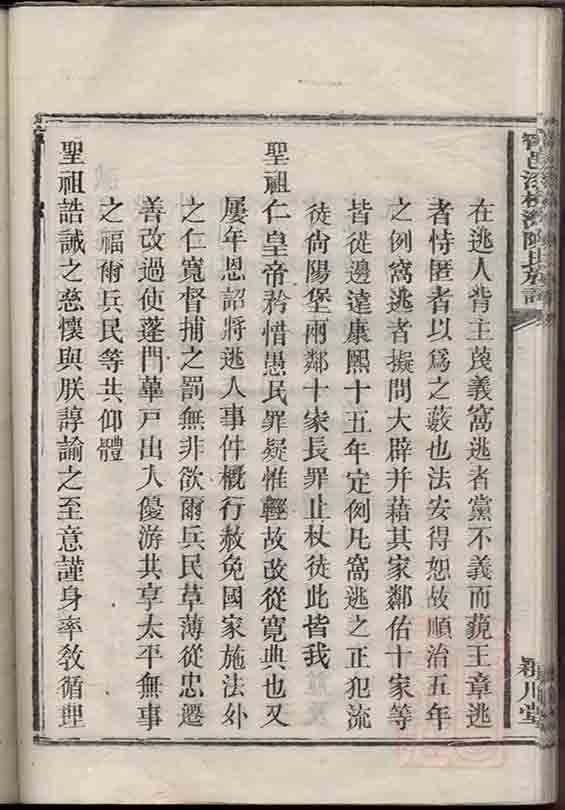 在逃人背主蔑義窩逃者黨不義而藐王章逃
者恃匿者以爲之藪也法安得恕故順治五年
之例窩逃者擬問大辟并藉其家鄰佑十家等
皆徙邊遠康熙十五年定例凡窩逃之正犯流
徙尙陽堡兩鄰十家長罪止杖徒此皆我
聖祖仁皇帝矜惜愚民罪疑惟輕故改從寬典也又
屢年恩詔將逃人事件槪行赦免國家施法外
之仁寬督捕之罰無非欲爾兵民革薄從忠遷
善改過使蓬門蓽戸出入優游共享太平無事
之福爾兵民等共仰體
聖祖誥誡之慈懷與朕諄諭之至意謹身率敎循理
陳氏族譜
潁川堂